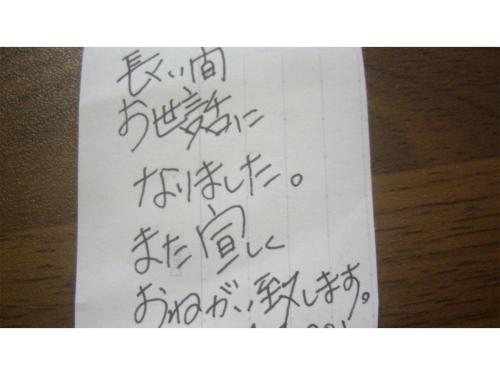 長い間
お世話に
なりました。
また宜しく
おねがい致します。